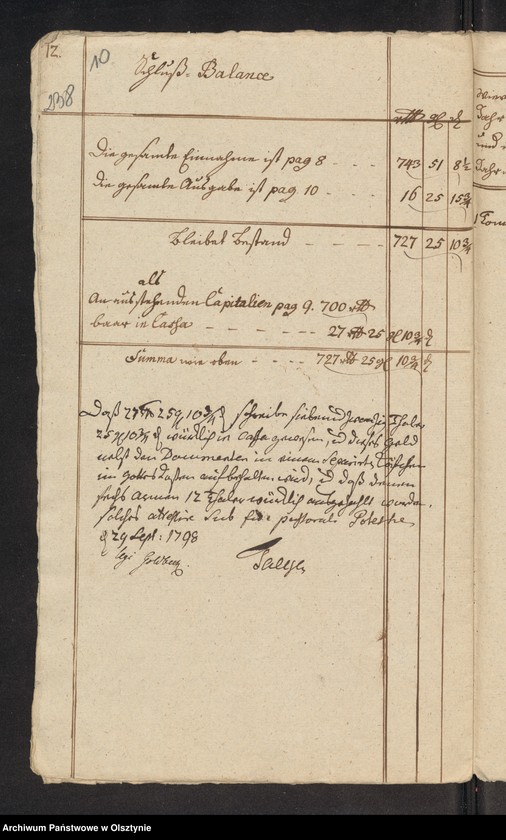 12.
10
238
Schluß-Balance
rthl gl d
Die gesamte Einnahme ist pag 8 - - - 743 51 8½
die gesamte Ausgabe ist pag 10 - - - 16 25 15¾
bleibet Bestand - - - - 727 25 10¾
als
An ausstehenden Capitalien pag 9. 700 rthl
baar in Cassa - - - - - 27 rthl 25 gl 10¾ d
Summa wie oben - - - - 727 rthl 25 gl 10¾ d
Daß 27 rthl 25 gl 10¾ d schreibe sieben und zwanzig Thaler
25 gl 10¾ d würklich in Cassa gewesen, u dieses Geld
nebst den Documenten in einem Kästchen
im Gottes Kasten aufbehalten wird, u daß denen
sechs Armen 12 Thaler würklich ausgezahlt worden,
solches attestire sub fide pastorali
d 29 Sept: 1798
Wier
Jahr
und
Jahr